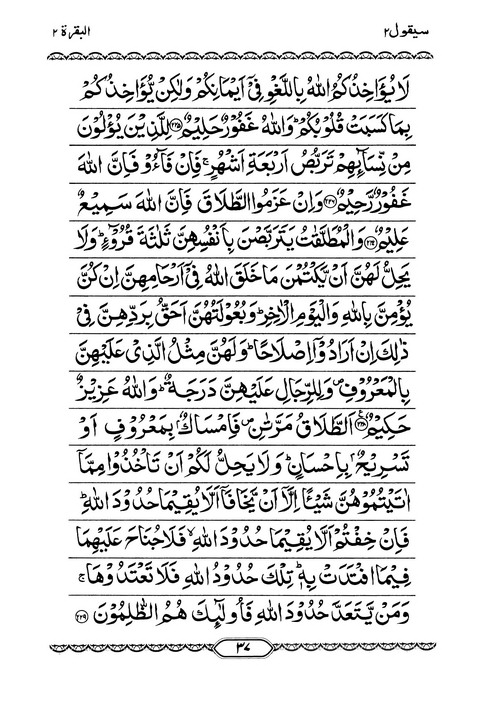 سيقول ٢
البقرة ٢
لَا يُؤَاخِذُكُمُ اللّٰهُ بِاللَّغْوِ فِيْٓ اَيْمَانِكُمْ وَلٰكِنْ يُّؤَاخِذُكُمْ
بِمَا كَسَبَتْ قُلُوْبُكُمْ ؕ وَاللّٰهُ غَفُوْرٌ حَلِيْمٌ ﴿٢٢٥﴾ لِلَّذِيْنَ يُؤْلُوْنَ
مِنْ نِّسَآئِهِمْ تَرَبُّصُ اَرْبَعَةِ اَشْهُرٍ ۚ فَاِنْ فَآءُوْ فَاِنَّ اللّٰهَ
غَفُوْرٌ رَّحِيْمٌ ﴿٢٢٦﴾ وَاِنْ عَزَمُوا الطَّلَاقَ فَاِنَّ اللّٰهَ سَمِيْعٌ
عَلِيْمٌ ﴿٢٢٧﴾ وَالْمُطَلَّقٰتُ يَتَرَبَّصْنَ بِاَنْفُسِهِنَّ ثَلٰثَةَ قُرُوْٓءٍ ؕ وَلَا
يَحِلُّ لَهُنَّ اَنْ يَّكْتُمْنَ مَا خَلَقَ اللّٰهُ فِيْٓ اَرْحَامِهِنَّ اِنْ كُنَّ
يُؤْمِنَّ بِاللّٰهِ وَالْيَوْمِ الْاٰخِرِ ؕ وَبُعُوْلَتُهُنَّ اَحَقُّ بِرَدِّهِنَّ فِيْ
ذٰلِكَ اِنْ اَرَادُوْٓا اِصْلَاحًا ؕ وَلَهُنَّ مِثْلُ الَّذِيْ عَلَيْهِنَّ
بِالْمَعْرُوْفِ ۪ وَلِلرِّجَالِ عَلَيْهِنَّ دَرَجَةٌ ؕ وَاللّٰهُ عَزِيْزٌ
حَكِيْمٌ ﴿٢٢٨﴾ اَلطَّلَاقُ مَرَّتٰنِ ۪ فَاِمْسَاكٌۢ بِمَعْرُوْفٍ اَوْ
تَسْرِيْحٌۢ بِاِحْسَانٍ ؕ وَلَا يَحِلُّ لَكُمْ اَنْ تَاْخُذُوْا مِمَّآ
اٰتَيْتُمُوْهُنَّ شَيْـًٔا اِلَّآ اَنْ يَّخَافَآ اَلَّا يُقِيْمَا حُدُوْدَ اللّٰهِ ؕ
فَاِنْ خِفْتُمْ اَلَّا يُقِيْمَا حُدُوْدَ اللّٰهِ ۙ فَلَا جُنَاحَ عَلَيْهِمَا
فِيْمَا افْتَدَتْ بِهٖ ؕ تِلْكَ حُدُوْدُ اللّٰهِ فَلَا تَعْتَدُوْهَا ۚ
وَمَنْ يَّتَعَدَّ حُدُوْدَ اللّٰهِ فَاُولٰٓئِكَ هُمُ الظّٰلِمُوْنَ ﴿٢٢٩﴾
٣٧